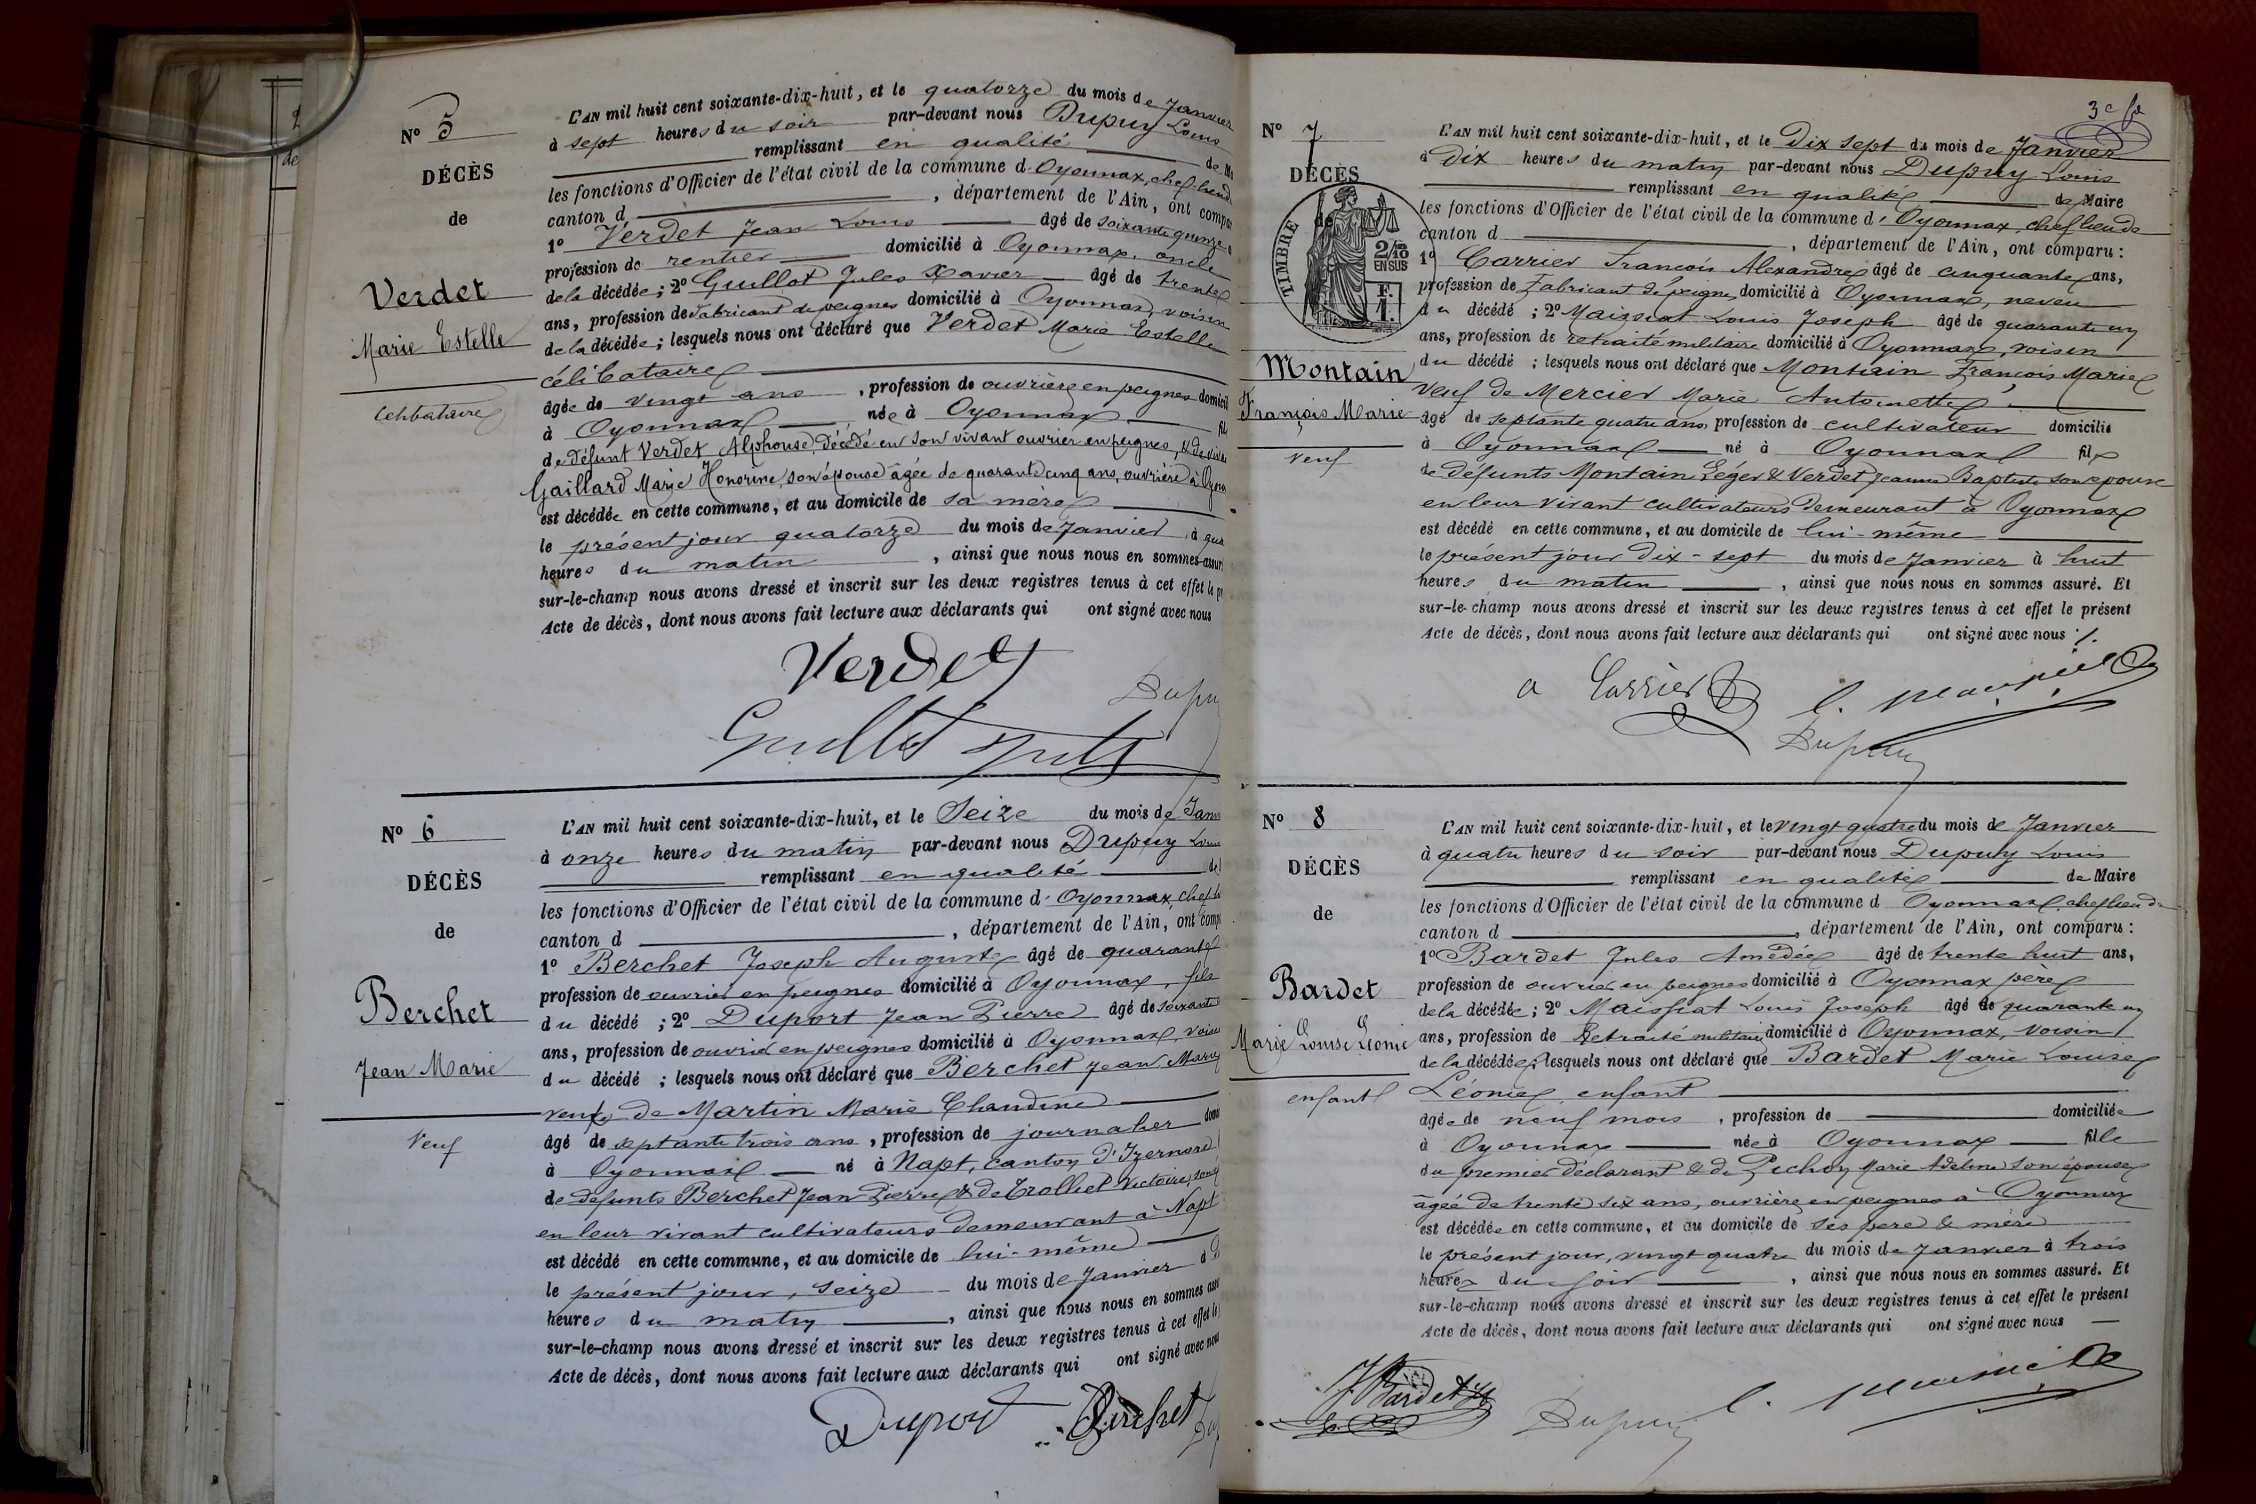 N° 5
DÉCÈS
de
Verdet
Marie Estelle
Célibataire
L'AN mil huit cent soixante-dix-huit, et le quatorze du mois de Janvier
à sept heures du soir par-devant nous Dupuy Louis
remplissant en qualité de
les fonctions d'Officier de l'état civil de la commune d'Oyonnax, chef lieu de
canton d , département de l'Ain, ont
1° Verdet Jean Louis âgé de soixante quinze
profession de rentier domicilié à Oyonnax, oncle
de la décédée ; 2° Guillot Jules Xavier âgé de trente
ans, profession de fabricant de peignes domicilié à Oyonnax, voisin
de la décédée ; lesquels nous ont déclaré que Verdet Marie Estelle
célibataire
âgée de vingt ans , profession de ouvrière en peignes
à Oyonnax née à Oyonnax
de défunt Verdet Alphonse, décédé en son vivant ouvrier en peignes, & de
Gaillard Marie Honorine, son épouse âgée de quarante cinq ans, ouvrière à
est décédée en cette commune, et au domicile de sa mère
le présent jour quatorze du mois de Janvier à
heures du matin , ainsi que nous nous en sommes
sur-le-champ nous avons dressé et inscrit sur les deux registres tenus à cet effet le
Acte de décès, dont nous avons fait lecture aux déclarants qui ont signé avec nous
Verdet
Guillot Jules
N° 6
DÉCÈS
de
Berchet
Jean Marie
Veuf
L'AN mil huit cent soixante-dix-huit, et le Seize du mois de
à onze heures du matin par-devant nous Dupuy Louis
remplissant en qualité
les fonctions d'Officier de l'état civil de la commune d'Oyonnax,
canton d , département de l'Ain, ont
1° Berchet Joseph Auguste âgé de quarante
profession de ouvrier en peignes domicilié à Oyonnax, fils
du décédé ; 2° Duport Jean Pierre âgé de soixante
ans, profession de ouvrier en peignes domicilié à Oyonnax,
du décédé ; lesquels nous ont déclaré que Berchet Jean Marie
veuf de Martin Marie Claudine
âgé de septante trois ans , profession de journalier
à Oyonnax né à Napt, canton d'Izernore
de défunts Berchet Jean Pierre & de Trolliet Victoire,
en leur vivant cultivateurs demeurant à Napt
est décédé en cette commune, et au domicile de lui-même
le présent jour, seize du mois de Janvier à
heures du matin , ainsi que nous nous en sommes
sur-le-champ nous avons dressé et inscrit sur les deux registres tenus à cet effet
Acte de décès, dont nous avons fait lecture aux déclarants qui ont signé avec
Duport Berchet
3e
N° 7
DÉCÈS
de
TIMBRE
2/10
EN SUS
F.
1.
Montain
François Marie
veuf
L'AN mil huit cent soixante-dix-huit, et le Dix sept du mois de Janvier
à Dix heures du matin par-devant nous Dupuy Louis
remplissant en qualité de Maire
les fonctions d'Officier de l'état civil de la commune d'Oyonnax, chef lieu de
canton d , département de l'Ain, ont comparu :
1° Carrier François Alexandre âgé de cinquante ans,
profession de Fabricant de peignes domicilié à Oyonnax, neveu
du décédé ; 2° Maissiat Louis Joseph âgé de quarante un
ans, profession de retraité militaire domicilié à Oyonnax, voisin
du décédé ; lesquels nous ont déclaré que Montain François Marie
veuf de Mercier Marie Antoinette
âgé de septante quatre ans, profession de cultivateur domicilié
à Oyonnax né à Oyonnax fils
de défunts Montain Léger & Verdet Jeanne Baptiste son épouse
en leur vivant cultivateurs demeurant à Oyonnax
est décédé en cette commune, et au domicile de lui-même
le présent jour dix-sept du mois de Janvier à huit
heures du matin , ainsi que nous nous en sommes assuré. Et
sur-le-champ nous avons dressé et inscrit sur les deux registres tenus à cet effet le présent
Acte de décès, dont nous avons fait lecture aux déclarants qui ont signé avec nous ./.
a Carrier L. Maissiat
Dupuy
N° 8
DÉCÈS
de
Bardet
Marie Louise Léonie
enfant
L'AN mil huit cent soixante-dix-huit, et le vingt quatre du mois de Janvier
à quatre heures du soir par-devant nous Dupuy Louis
remplissant en qualité de Maire
les fonctions d'Officier de l'état civil de la commune d Oyonnax, chef lieu de
canton d , département de l'Ain, ont comparu :
1° Bardet Jules Amédée âgé de trente huit ans,
profession de ouvrier en peignes domicilié à Oyonnax père
de la décédée ; 2° Maissiat Louis Joseph âgé de quarante un
ans, profession de Retraité militaire domicilié à Oyonnax, voisin
de la décédée ; lesquels nous ont déclaré que Bardet Marie Louise
Léonie, enfant
âgée de neuf mois , profession de domiciliée
à Oyonnax née à Oyonnax fille
du premier déclarant & de Pichon Marie Adeline son épouse
âgée de trente six ans, ouvrière en peignes à Oyonnax
est décédée en cette commune, et au domicile de ses père & mère
le présent jour, vingt quatre du mois de Janvier à trois
heures du soir , ainsi que nous nous en sommes assuré. Et
sur-le-champ nous avons dressé et inscrit sur les deux registres tenus à cet effet le présent
Acte de décès, dont nous avons fait lecture aux déclarants qui ont signé avec nous
J Bardet Dupuy L. Maissiat